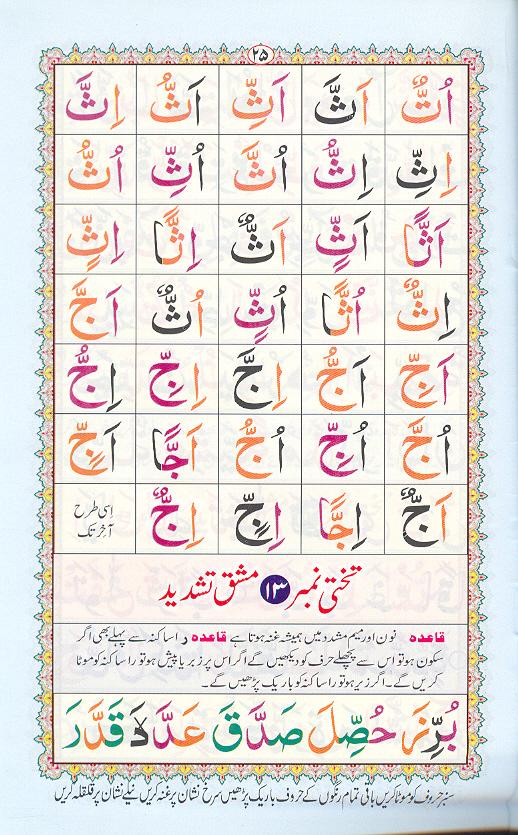 ۲۵
اُتٌّ اَثَّ اَثِّ اَثُّ اِثَّ
اِثِّ اِثُّ اُثَّ اُثِّ اُثُّ
اَثًّا اَثٍّ اَثٌّ اِثًّا اِثٍّ
اِثٌّ اُثًّا اُثٍّ اُثٌّ اَجَّ
اَجِّ اَجُّ اِجَّ اِجِّ اِجُّ
اُجَّ اُجِّ اُجُّ اَجًّا اَجٍّ
اَجٌّ اِجًّا اِجٍّ اِجٌّ اسی طرح آخر تک
تختی نمبر ۱۳ مشق تشدید
قاعدہ نون اور میم مشدد میں ہمیشہ غنہ ہوتا ہے قاعدہ را ساکنہ سے پہلے بھی اگر
سکون ہو تو اس سے پچھلے حرف کو دیکھیں گے اگر اس پر زبر یا پیش ہو تو را ساکنہ کو موٹا
کریں گے۔ اگر زیر ہو تو را ساکنہ کو باریک پڑھیں گے۔
بُرِّزَ حُصِّلَ صَدَّقَ عَدَّدَ قَدَّرَ
سبز حروف کو موٹا کریں باقی تمام رنگوں کے حروف باریک پڑھیں سرخ نشان پر غنہ کریں نیلے نشان پر قلقلہ کریں